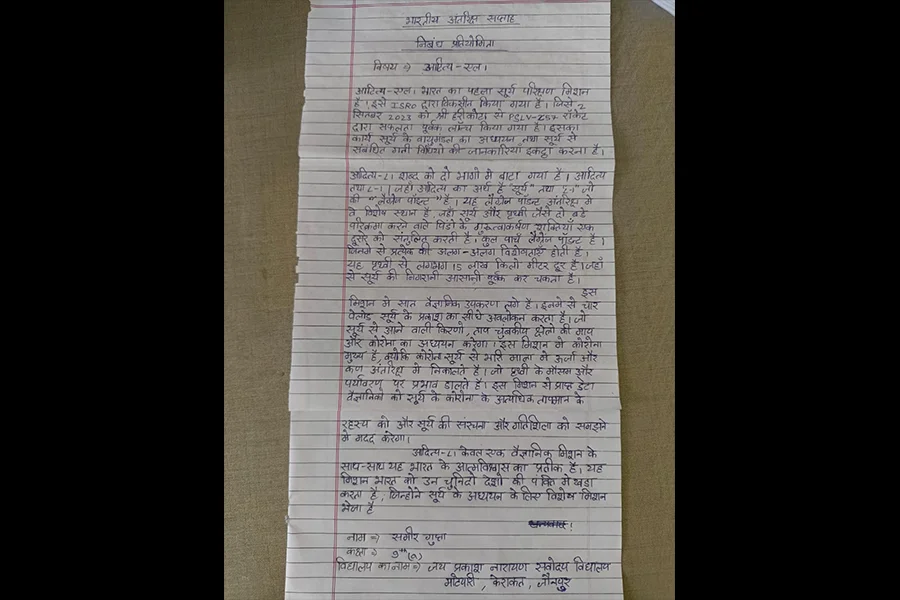 भारतीय अंतरिक्ष सप्ताह
निबंध प्रतियोगिता
विषय => आदित्य-एल।
आदित्य-एल। भारत का पहला सूर्य परिषण मिशन
है। इसे ISRO द्वारा विकसीत किया गया है। जिसे 2
सितंबर 2023 को श्री हरीकोटा से PSLV-Z57 रॉकेट
द्वारा सफलता पूर्वक लॉन्च किया गया है। इसका
कार्य सूर्य के वायुमंडल का अध्ययन तथा सूर्य से
संबंधित गती विधियो की जानकारियाँ इकट्ठा करना है।
आदित्य-L1 शब्द को दो भागो मे बाटा गया है। आदित्य
तथा L-1। जहाँ आदित्य का अर्थ है "सूर्य" तथा "L-1" जो
की "लैग्रेंज पॉइन्ट" है। यह लैग्रेंज पॉइन्ट अंतरिक्ष मे
वे विशेष स्थान है, जहाँ सूर्य और पृथ्वी जैसे दो बड़े
परिक्रमा करने वाले पिंडो के गुरुत्वाकर्षण शक्तियां एक
दूसरे को संतुलित करती है, कुल पांच लैग्रेंज पॉइन्ट है।
जिनमे से प्रत्येक की अलग-अलग विशेषताएँ होती है,
यह पृथ्वी से लगभग 15 लाख किलो मीटर दूर है। जहाँ
से सूर्य की निगरानी आसानी पूर्वक कर सकता है।
इस
मिशन मे सात वैज्ञानिक उपकरण लगे है। इनमे से चार
पेलोड सूर्य के प्रकाश का सीधे अवलोकन करता है। जो
सूर्य से आने वाली किरणो, ताप चुंबकीय क्षेत्रो की माप
और कोरोना का अध्ययन करेगा। इस मिशन मे कोरोना
मुख्य है, क्योकि कोरोना सूर्य से भारी मात्रा मे ऊर्जा और
कण अंतरिक्ष मे निकालते है। जो पृथ्वी के मौसम और
पर्यावरण पर प्रभाव डालते है। इस मिशन से प्राप्त डेटा
वैज्ञानिको को सूर्य के कोरोना के अत्यधिक तापमान के
रहस्य को और सूर्य की संरचना और गतिशिलता को समझने
मे मदद करेगा।
आदित्य-L1 केवल एक वैज्ञानिक मिशन के
साथ-साथ यह भारत के आत्मविश्वास का प्रतीक है। यह
मिशन भारत को उन चुनिंदो देशो की पंक्ति मे खड़ा
करता है, जिन्होंने सूर्य के अध्ययन के लिए विशेष मिशन
भेजा है
नाम => समीर गुप्ता
कक्षा => 9th (A)
विद्यालय का नाम => जय प्रकाश नारायण सर्वोदय विद्यालय
केराकत, जौनपुर